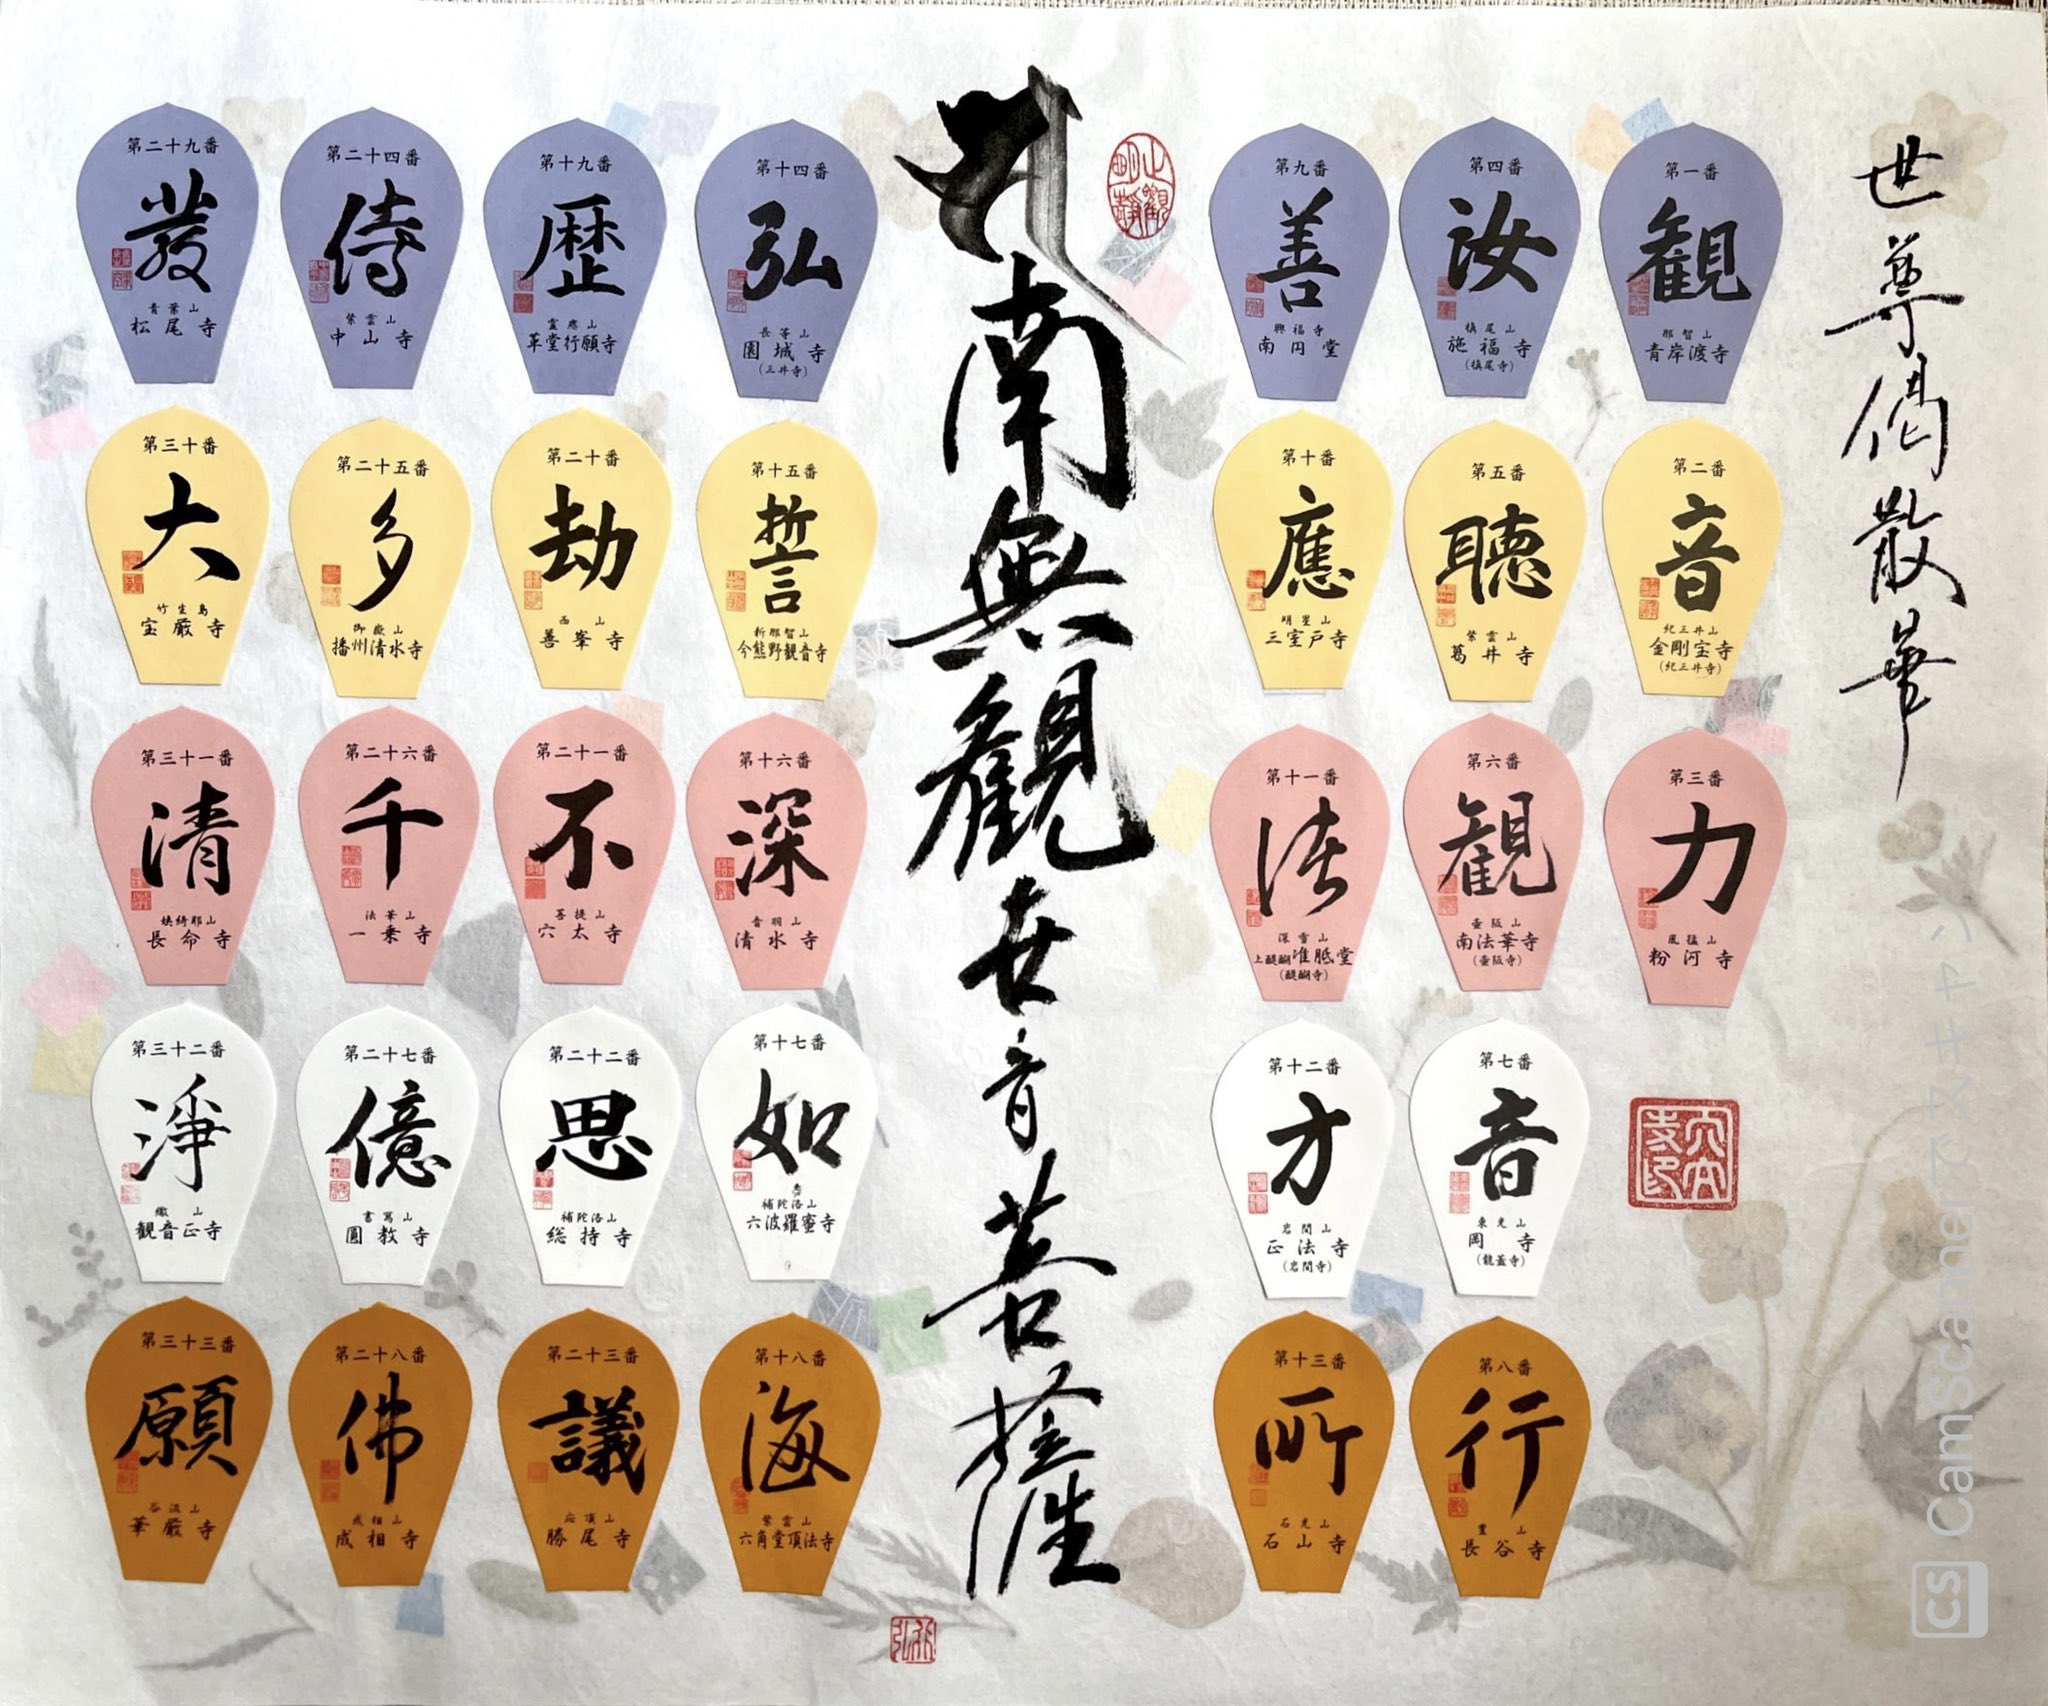 世尊偈散華
第一番
観
那智山
青岸渡寺
第二番
音
紀三井山
金剛宝寺
(紀三井寺)
第三番
力
風猛山
粉河寺
第四番
汝
槙尾山
施福寺
(槙尾寺)
第五番
聴
紫雲山
葛井寺
第六番
観
壺阪山
南法華寺
(壺阪寺)
第七番
音
東光山
岡寺
(龍蓋寺)
第八番
行
豊山
長谷寺
第九番
善
興福寺
南円堂
第十番
應
明星山
三室戸寺
第十一番
諸
深雪山
上醍醐准胝堂
(醍醐寺)
第十二番
方
岩間山
正法寺
(岩間寺)
第十三番
所
石光山
石山寺
南無觀世音菩薩
第十四番
弘
長等山
園城寺
(三井寺)
第十五番
誓
新那智山
今熊野観音寺
第十六番
深
音羽山
清水寺
第十七番
如
補陀洛山
六波羅蜜寺
第十八番
海
紫雲山
六角堂頂法寺
第十九番
歴
霊麀山
革堂行願寺
第二十番
劫
西山
善峯寺
第二十一番
不
菩提山
穴太寺
第二十二番
思
補陀洛山
総持寺
第二十三番
議
応頂山
勝尾寺
第二十四番
侍
紫雲山
中山寺
第二十五番
多
御嶽山
播州清水寺
第二十六番
千
法華山
一乗寺
第二十七番
億
書寫山
圓教寺
第二十八番
佛
成相山
成相寺
第二十九番
発
青葉山
松尾寺
第三十番
大
竹生島
宝厳寺
第三十一番
清
姨綺耶山
長命寺
第三十二番
淨
繖山
観音正寺
第三十三番
願
谷汲山
華厳寺
CS CamScannerでスキャン